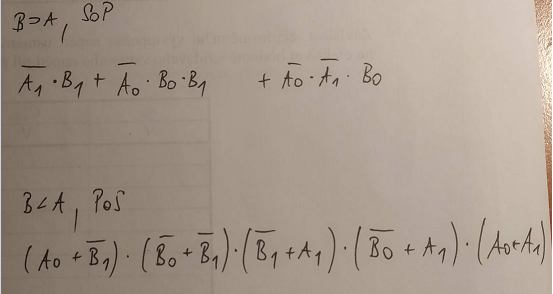 B>A, SoP
A̅₁·B₁ + A̅₀·B₀·B₁ + A̅₀·A̅₁·B₀
B<A, PoS
(A₀ + B̅₁)·(B̅₀ + B̅₁)·(B̅₁ + A₁)·(B̅₀ + A₁)·(A₀+A₁)